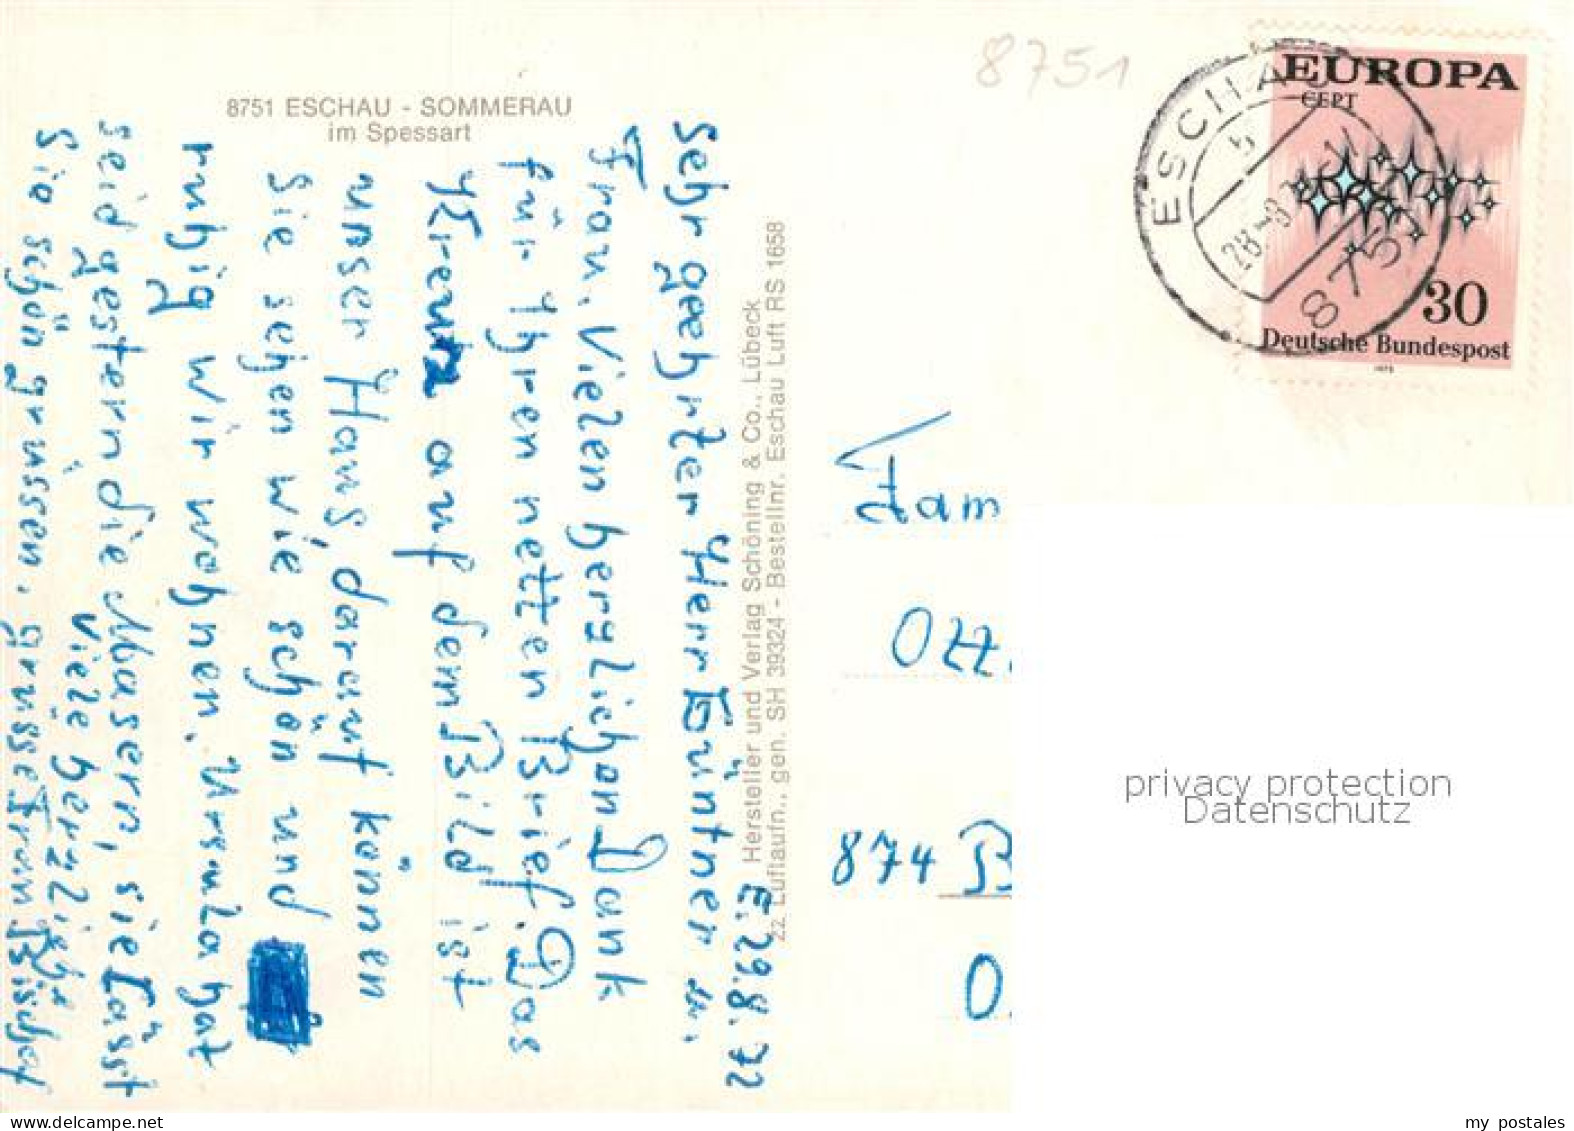 8751
8751 ESCHAU - SOMMERAU
im Spessart
EUROPA
CEPT
30
Deutsche Bundespost
1972
ESCHAU
8751
28.-8.
Hersteller und Verlag Schöning & Co., Lübeck
zz Luftaufn., gen. SH 39324 - Bestellnr. Eschau Luft RS 1658
E. 29.8.72
Sehr geehrter Herr Büntner u.
Frau. Vielen herzlichen Dank
für Ihren netten Brief. Das
Kreuz auf dem Bild ist
unser Haus, darauf können
Sie sehen wie schön und
ruhig wir wohnen. Ursula hat
seid gestern die Masern, sie lässt
Sie schön grüssen.
Viele herzliche
Grüsse Fram. Bischof
Fam
Ott.
874 B
O.
privacy protection
Datenschutz
www.delcampe.net
my_postales